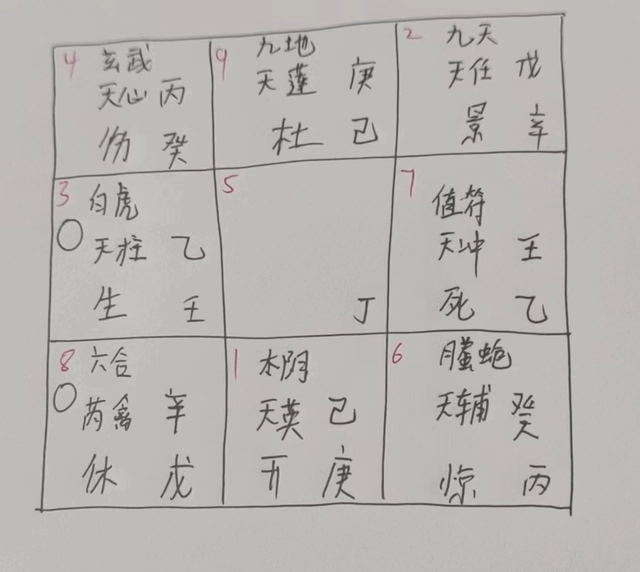 4 玄武
天心 丙
伤 癸
9 九地
天蓬 庚
杜 己
2 九天
天任 戊
景 辛
3 白虎
天柱 乙
生 壬
5
丁
7 值符
天冲 壬
死 乙
8 六合
芮禽 辛
休 戊
1 太阴
天英 己
开 庚
6 螣蛇
天辅 癸
惊 丙